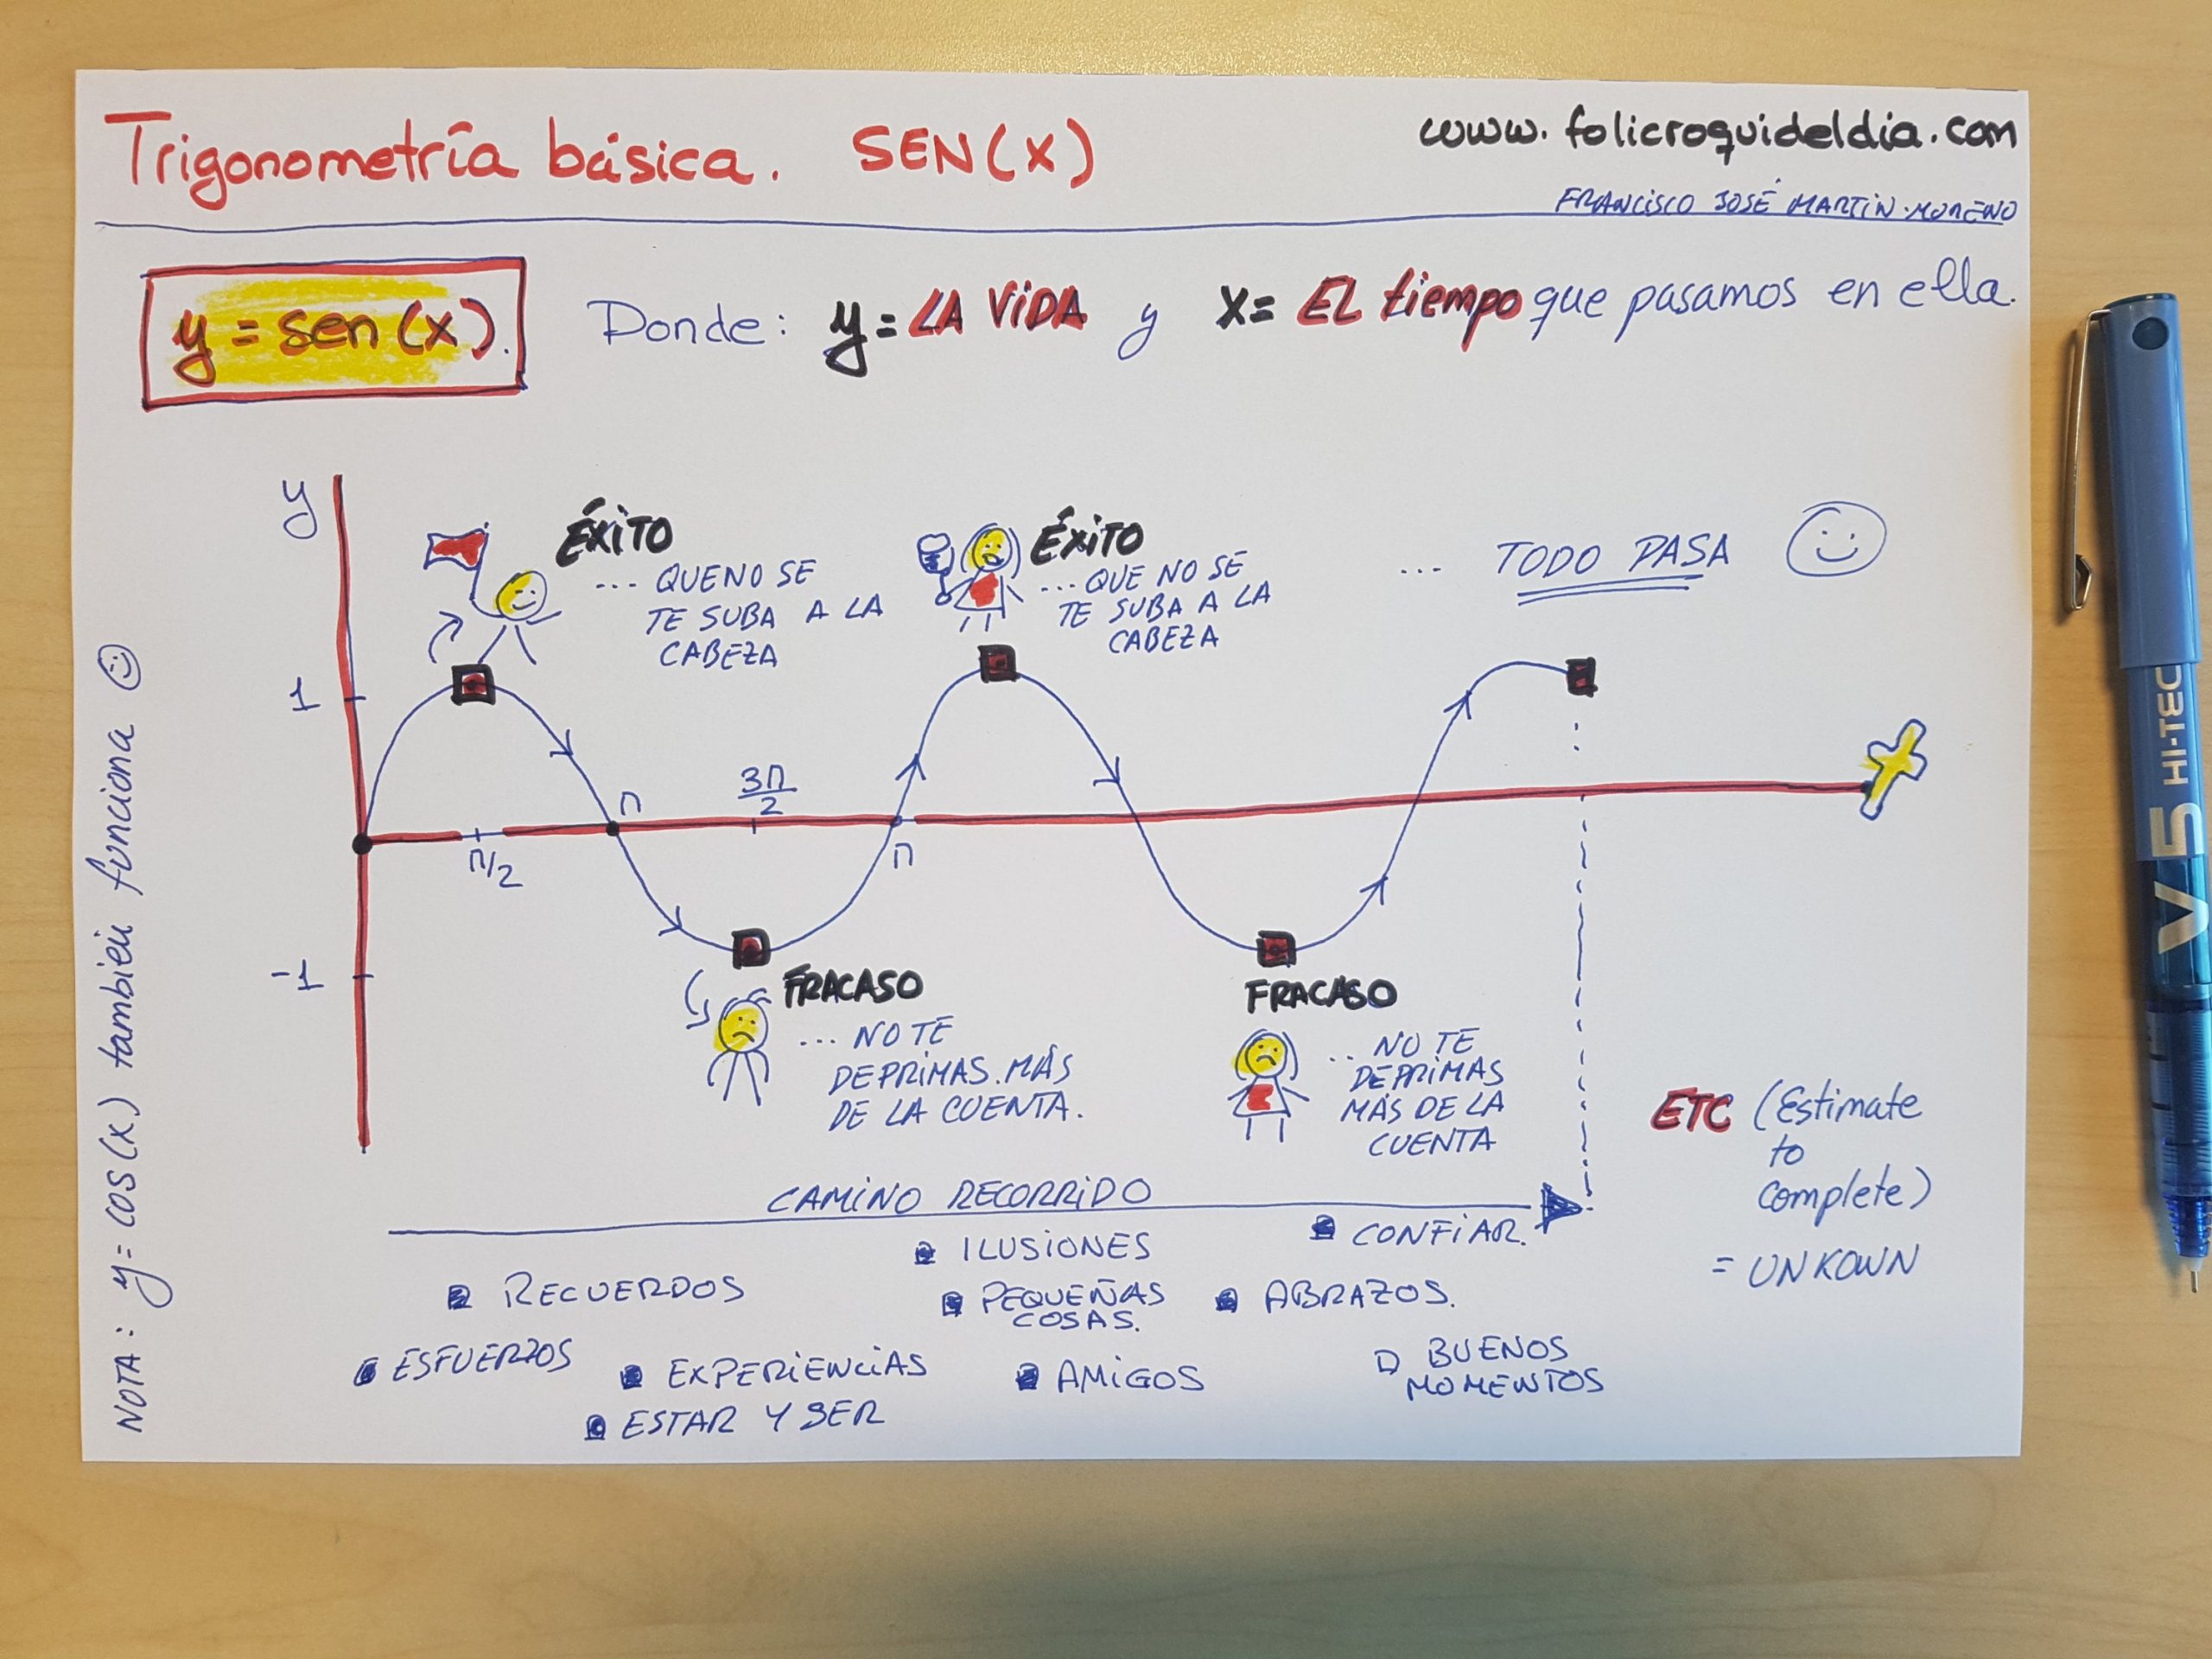 Trigonometría básica. SEN(X)
www.folicroquideldia.com
FRANCISCO JOSÉ MARTIN-MORENO
y = sen(x).
Donde: y = LA VIDA y X= EL tiempo que pasamos en ella.
y
1
-1
π/2
π
3π/2
π
ÉXITO
... QUE NO SE
TE SUBA A LA
CABEZA
ÉXITO
... QUE NO SE
TE SUBA A LA
CABEZA
... TODO PASA
FRACASO
... NO TE
DEPRIMAS MÁS
DE LA CUENTA.
FRACASO
... NO TE
DEPRIMAS
MÁS DE LA
CUENTA
ETC (Estimate
to
complete)
= UNKOWN
CAMINO RECORRIDO
ILUSIONES
CONFIAR.
RECUERDOS
PEQUEÑAS
COSAS.
ABRAZOS.
ESFUERZOS
EXPERIENCIAS
AMIGOS
BUENOS
MOMENTOS
ESTAR Y SER
NOTA: y = cos(x) también funciona
V5 HI-TEC